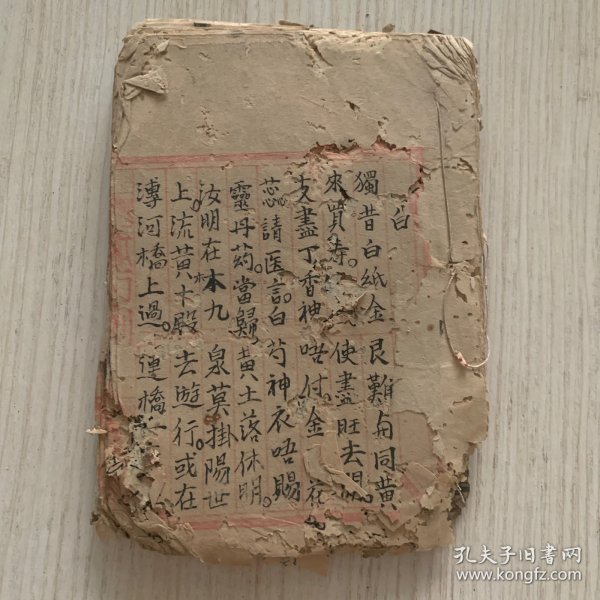 白
獨昔白紙金艮難与同黃
來買壽使盡旺去
支盡丁香神唔付金花
蕊請医言白芍神衣唔賜
靈丹葯當歸黃土落休明
汝明在本九泉莫掛陽世
上流黃十殿去遊行或在
漙河橋上過連橋
孔夫子旧书网
www.kongfz.com